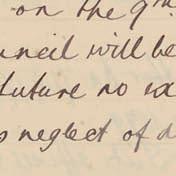 on the 9th
uncil will be
future no ex
s neglect of d